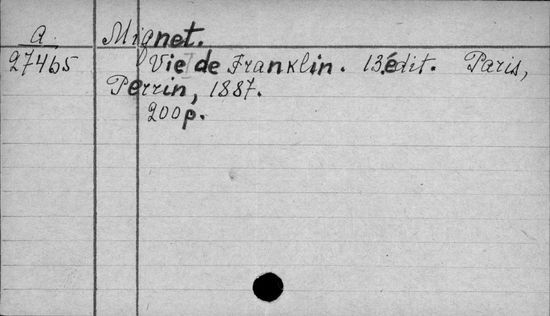 Q Mignet.
27465 Vie de Franklin. 13 édit. Paris,
Perrin, 1887.
200 p.